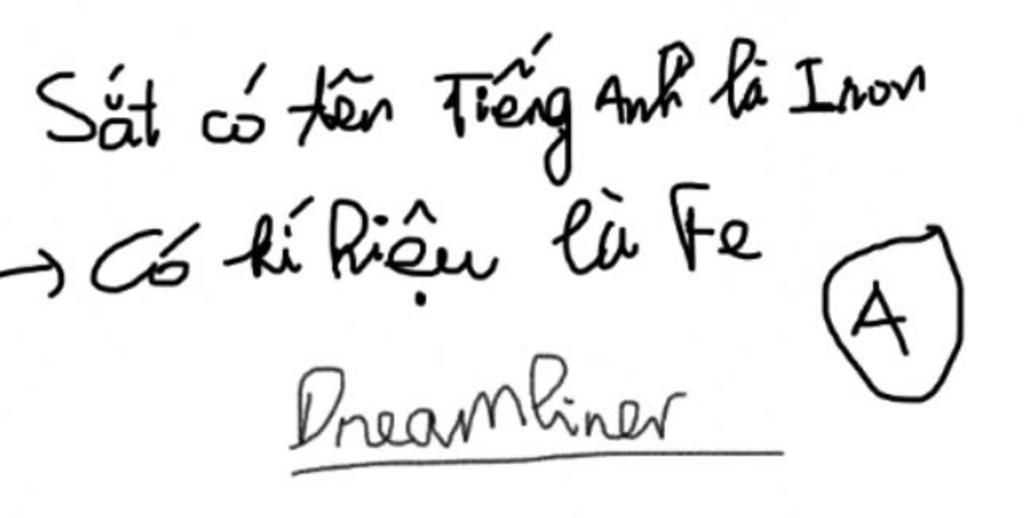 Sắt có tên Tiếng Anh là Iron
→ Có kí hiệu là Fe
A
Dreamliner